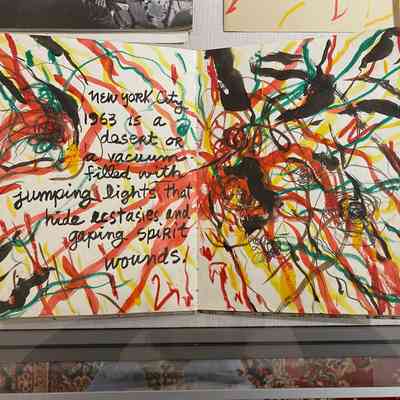 New York City
1963 is a
desert or
a vacuum
filled with
jumping lights that
hide ecstasies and
gaping spirit
wounds.